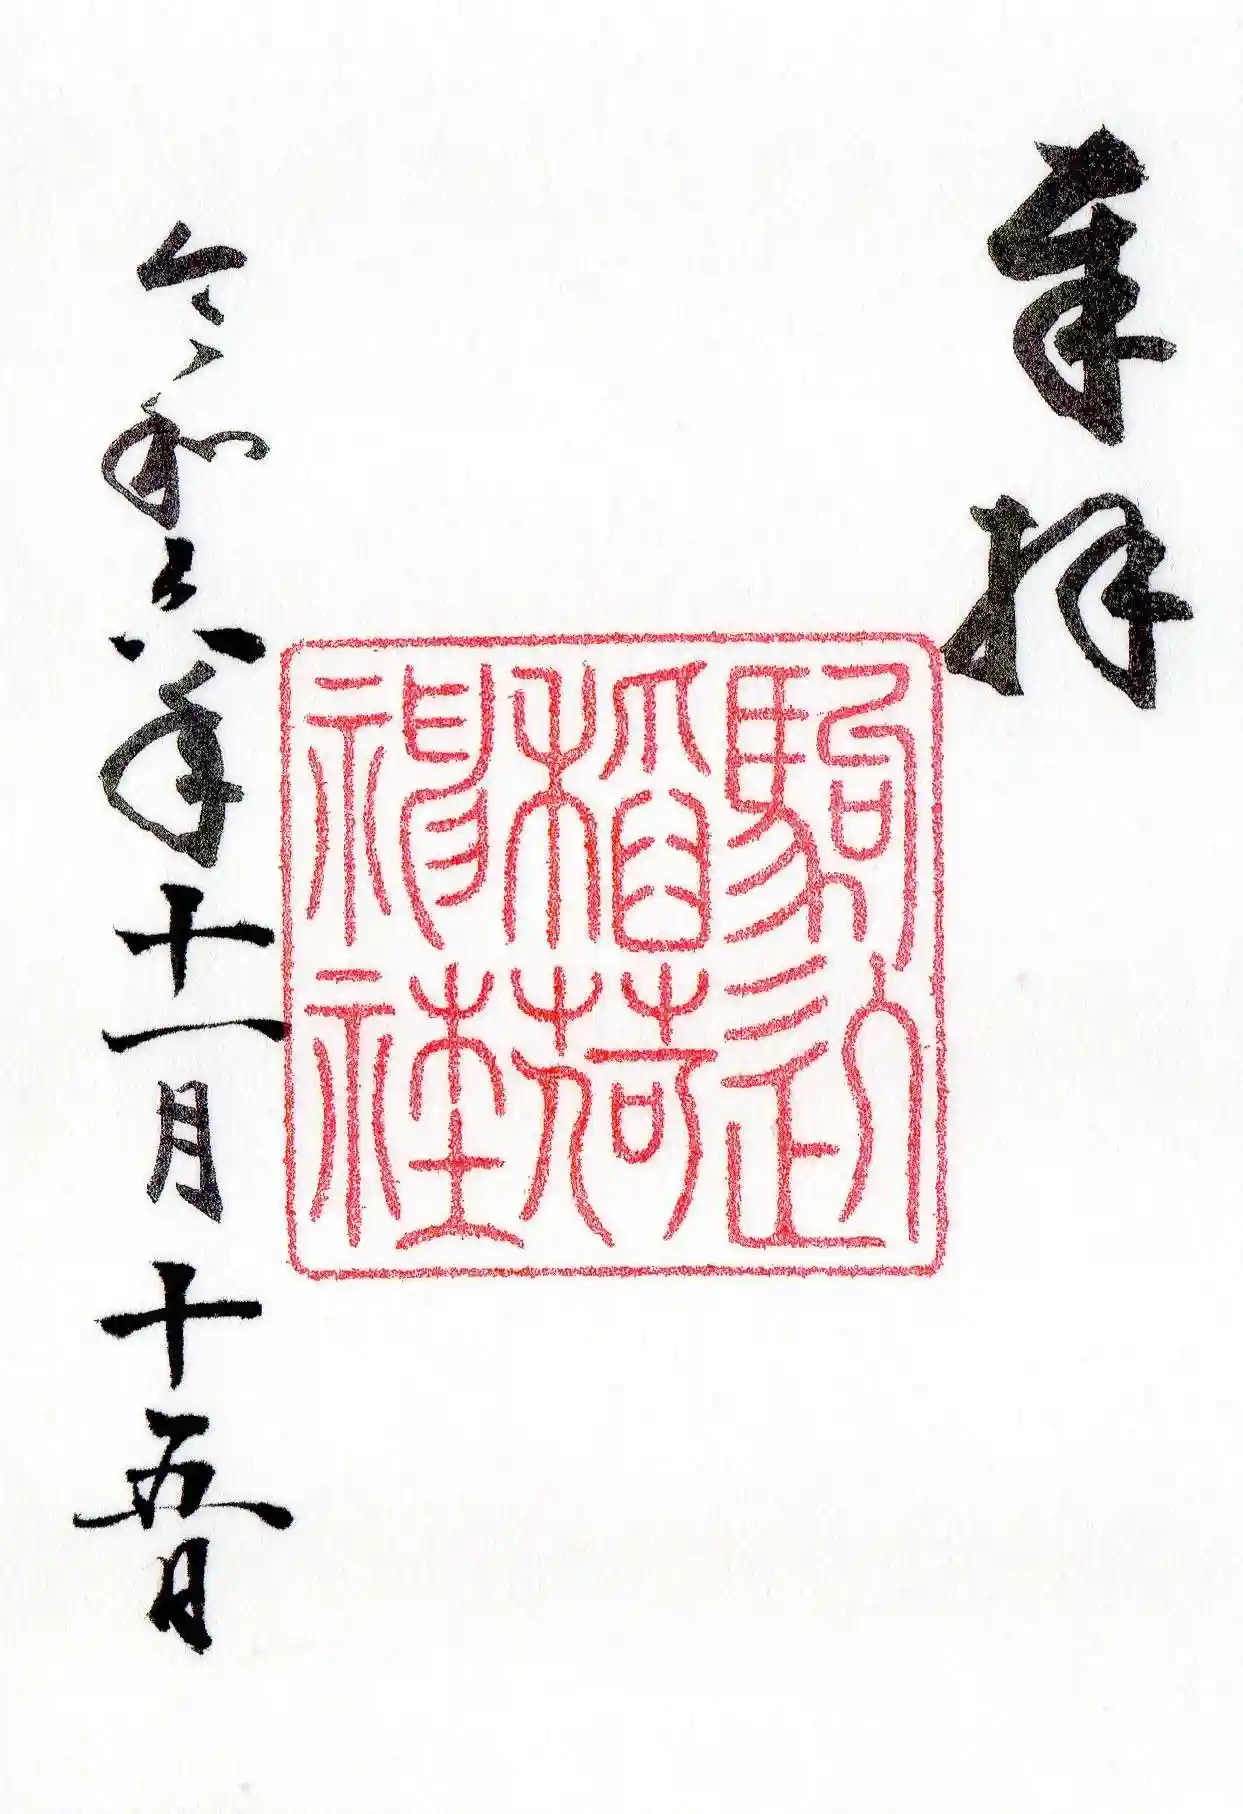 奉拝
駒込
稲荷
神社
令和六年十一月十五日